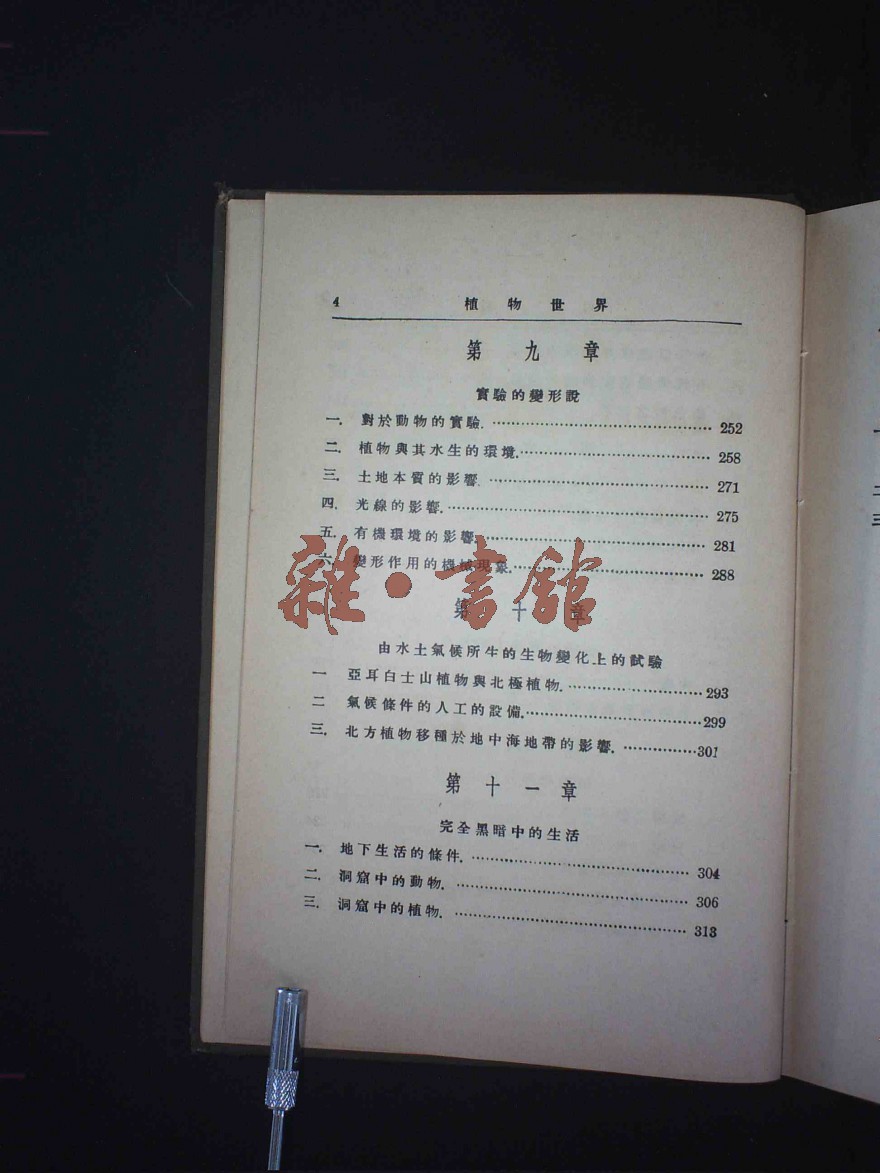 4 植物世界
第九章
實驗的變形說
一. 對於動物的實驗. 252
二. 植物與其水生的環境. 258
三. 土地本質的影響. 271
四. 光線的影響. 275
五. 有機環境的影響. 281
六. 變形作用的機械現象. 288
雜·書館
第十章
由水土氣候所生的生物變化上的試驗
一 亞耳白士山植物與北極植物. 293
二 氣候條件的人工的設備. 299
三. 北方植物移種於地中海地帶的影響. 301
第十一章
完全黑暗中的生活
一. 地下生活的條件. 304
二. 洞窟中的動物. 306
三. 洞窟中的植物. 313